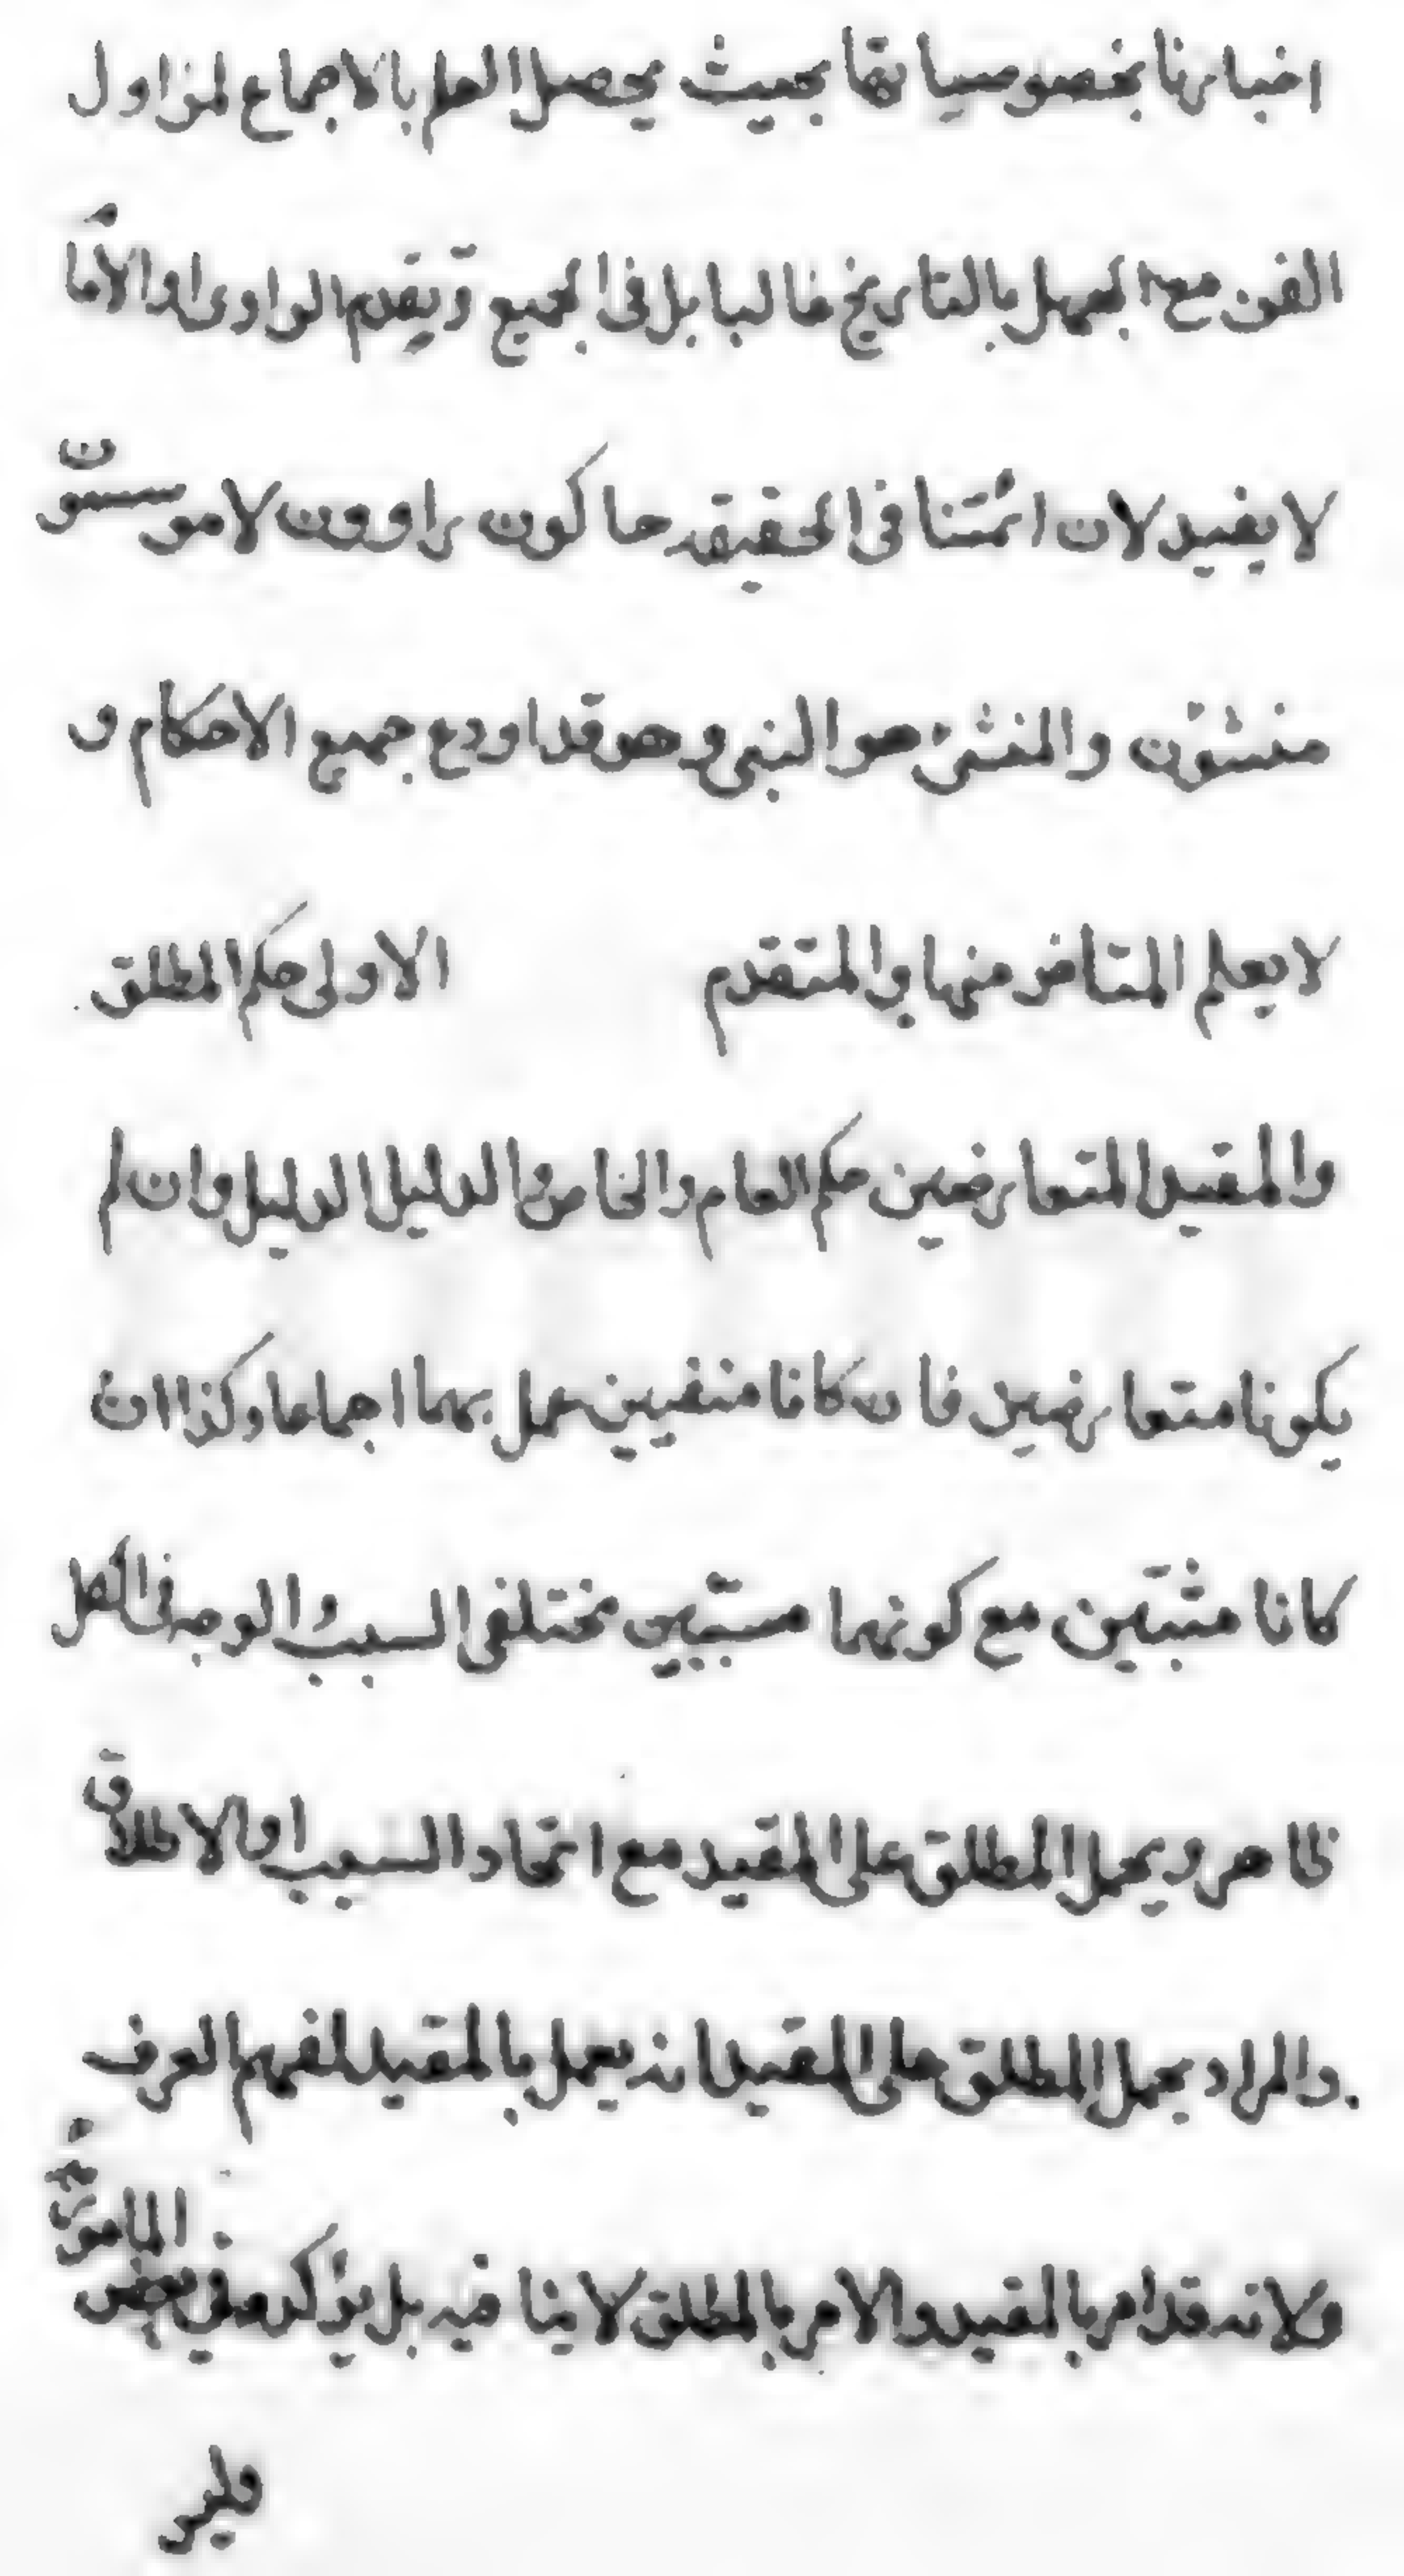 اخبارنا بخصوصياتها بحيث يحصل العلم بالاجماع لمزاول
الفن مع الجهل بالتاريخ غالبا بل في الجميع وتقدم الراوى او الامام
لا يفيد لان ائمتنا في الحقيقه حاكون راوون لا موسسون
منشؤن والمنشئ هو النبي وهو قد اودع جميع الاحكام و
لا يعلم المتاخر منها والمتقدم الاولى حكم المطلق
والمقيد المتعارضين حكم العام والخاص والدليل الدليل وان لم
يكونا متعارضين فان كانا منفيين عمل بهما اجماعا وكذا ان
كانا مثبتين مع كونهما مسببين مختلفى السبب والوجه في الكل
ظاهر ويحمل المطلق على المقيد مع اتحاد السبب او الاطلاق
والمراد بحمل المطلق على المقيد انه يعمل بالمقيد لفهم العرف
ولانه قد امر بالمقيد والامر بالمطلق لا ينافيه بل يؤكده في بعض المامور
وليس